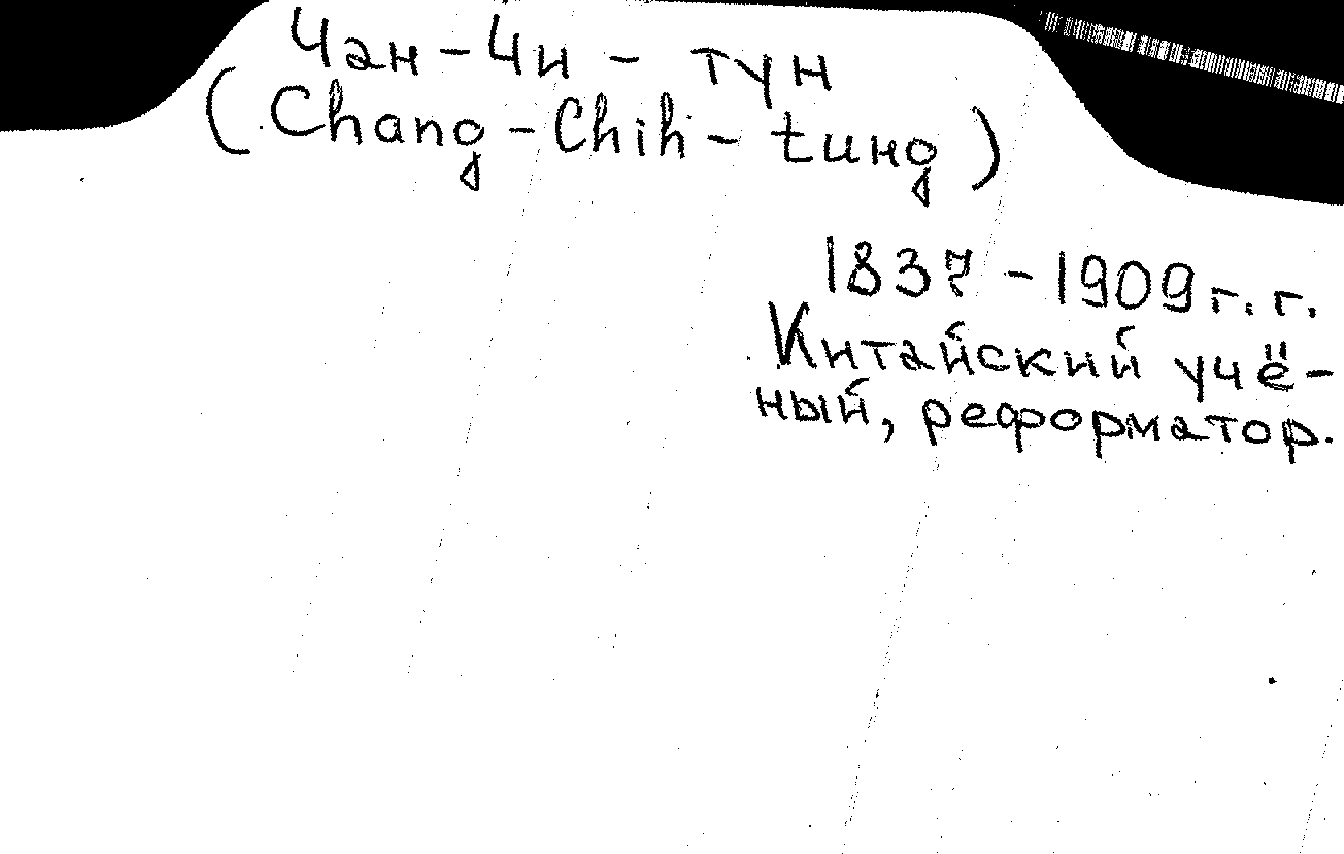 Чан-Чи-тун
(Chang-Chih-tung)
1837-1909 г.г.
Китайский учё-
ный, реформатор.